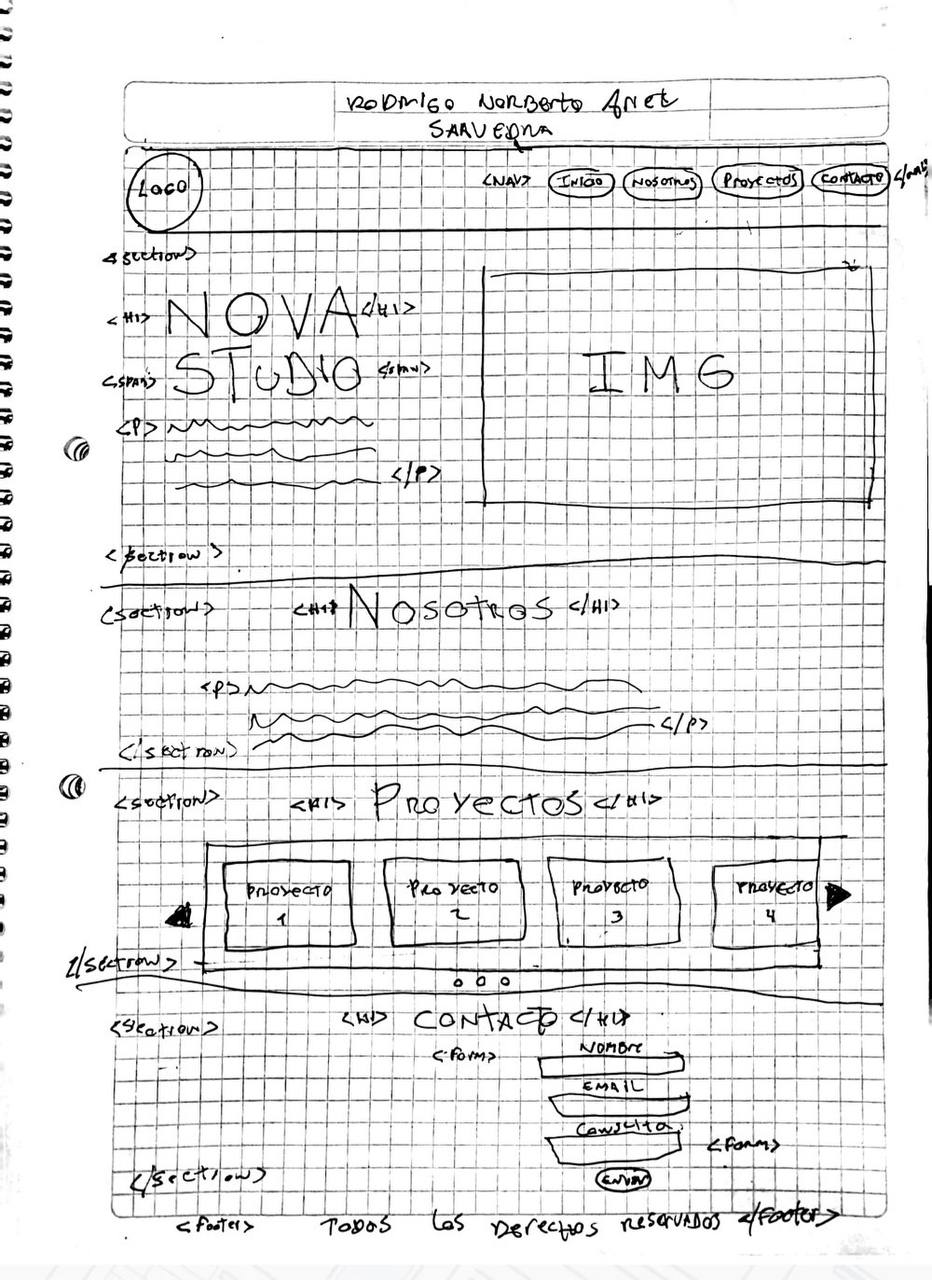 RODRIGO NORBERTO Anet
SAAVEDRA
LOGO
<NAV> INICIO NOSOTROS PROYECTOS CONTACTO </NAV>
<section>
<H1> NOVA </H1>
<SPAN> STUDIO </SPAN>
<P>
</P>
IMG
<section>
<section> <H1> NOSOTROS </H1>
<P>
</P>
</section>
<section> <H1> PROYECTOS </H1>
PROYECTO 1
PROYECTO 2
PROYECTO 3
PROYECTO 4
</section>
<section> <H1> CONTACTO </H1>
<FORM> NOMBRE
EMAIL
CONSULTA
<FORM>
ENVIAR
</section>
<footer> TODOS LOS DERECHOS RESERVADOS </footer>